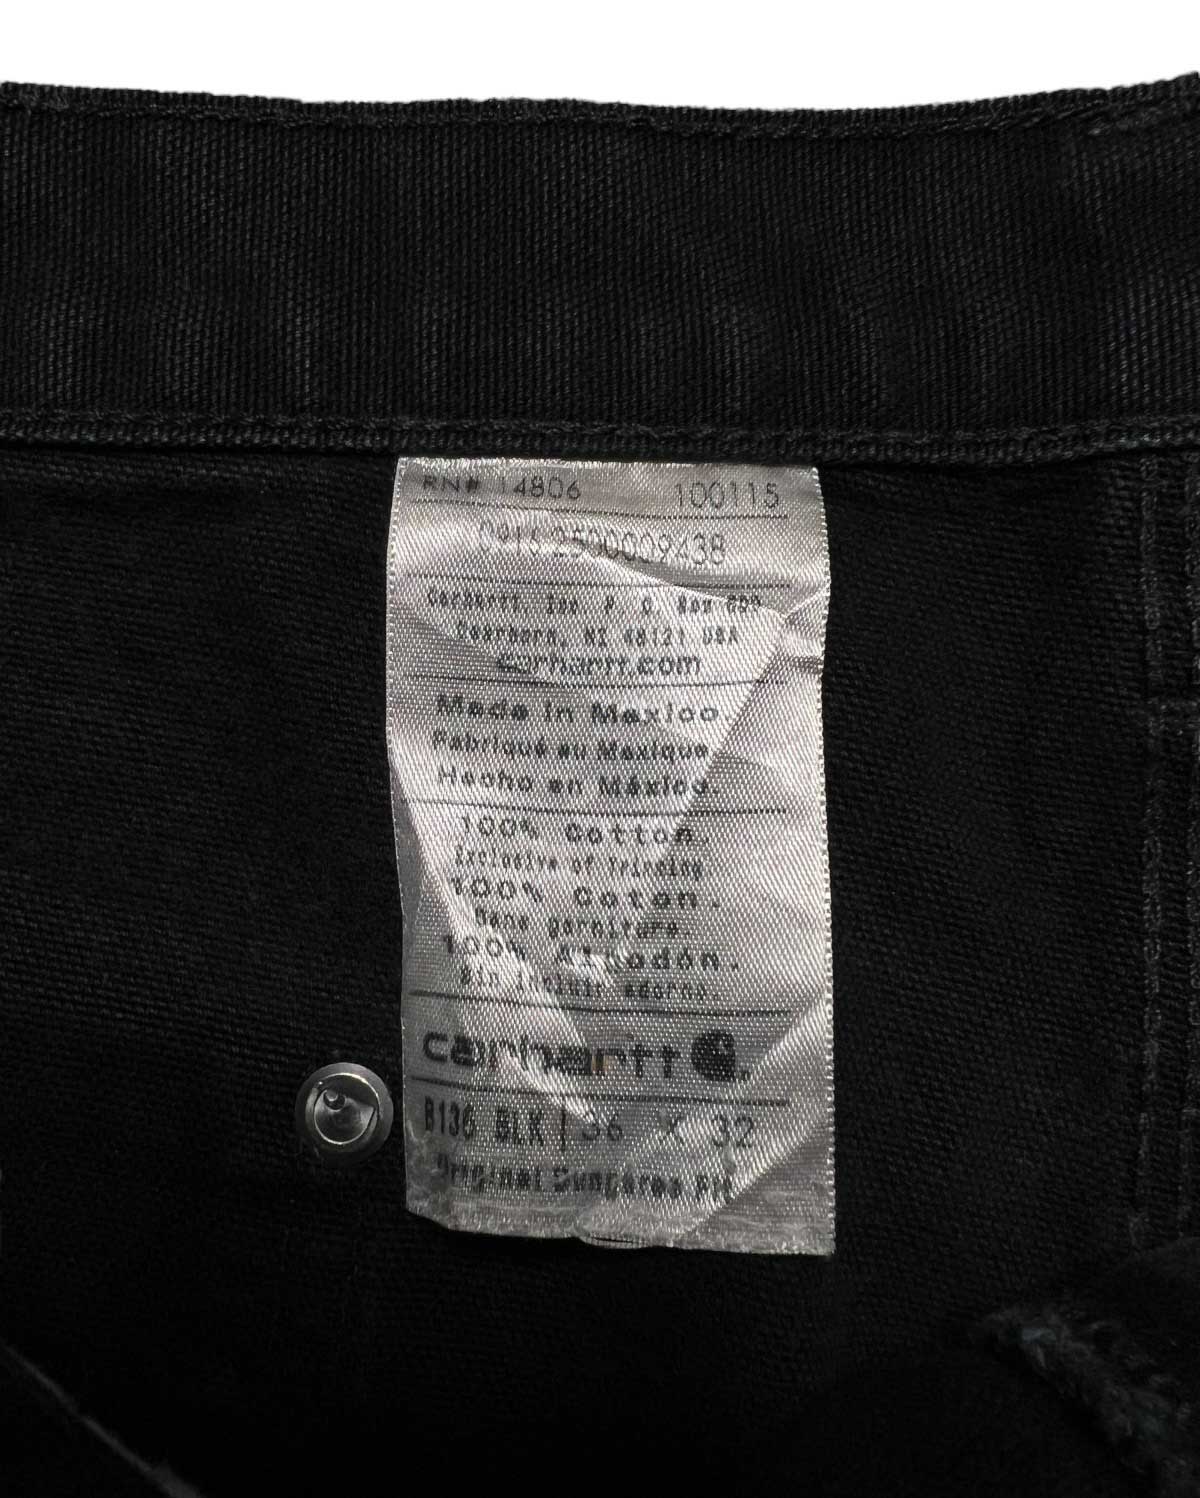 RN# 14806 100115
Carhartt, Inc. P. O. Box 600
Dearborn, MI 48121 USA
carhartt.com
Made in Mexico.
Fabriqué au Mexique.
Hecho en México.
100% Cotton
Exclusive of Trimming
100% Coton.
Sans garniture.
100% Algodón.
Sin incluir adorno.
carhartt
B136 BLK | 36 X 32
Original Dungaree Fit